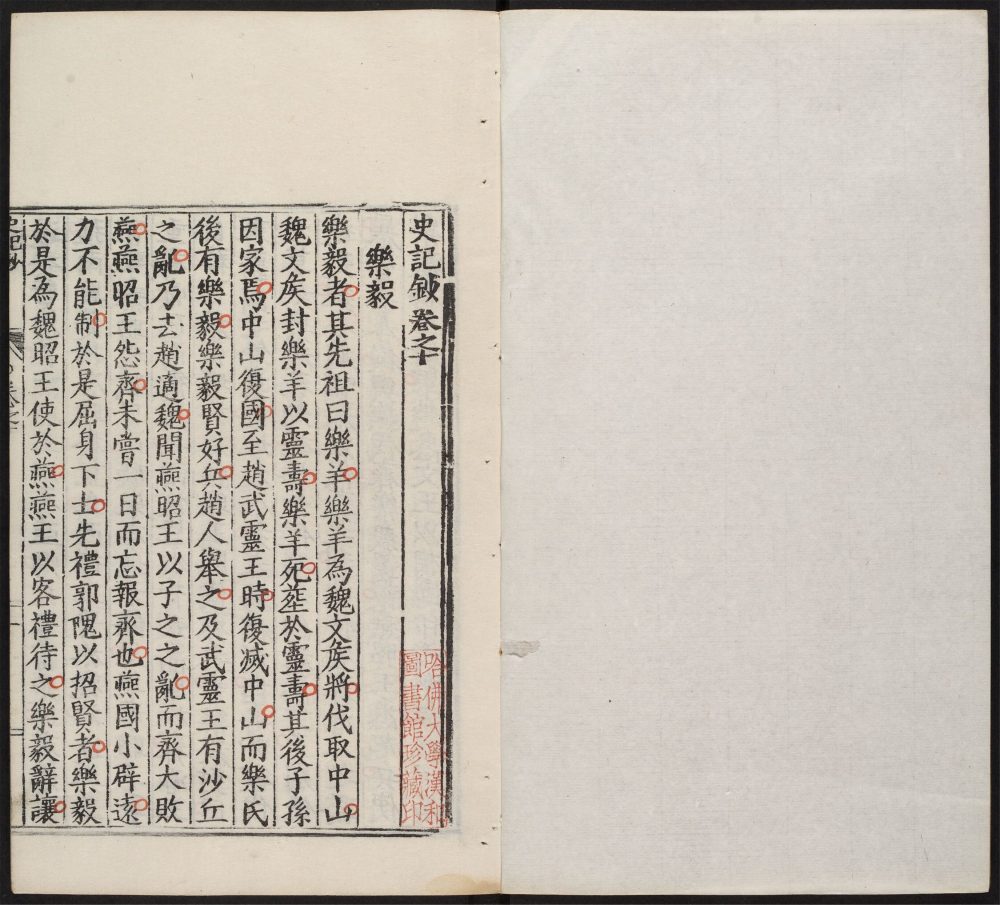 史記鈔卷之十
樂毅
樂毅者其先祖曰樂羊樂羊為魏文侯將伐取中山
魏文侯封樂羊以靈壽樂羊死塟於靈壽其後子孫
因家焉中山復國至趙武靈王時復滅中山而樂氏
後有樂毅樂毅賢好兵趙人舉之及武靈王有沙丘
之亂乃去趙適魏聞燕昭王以子之之亂而齊大敗
燕燕昭王怨齊未嘗一日而忘報齊也燕國小辟遠
力不能制於是屈身下士先禮郭隗以招賢者樂毅
於是為魏昭王使於燕燕王以客禮待之樂毅辭讓
哈佛大學漢和
圖書館珍藏印